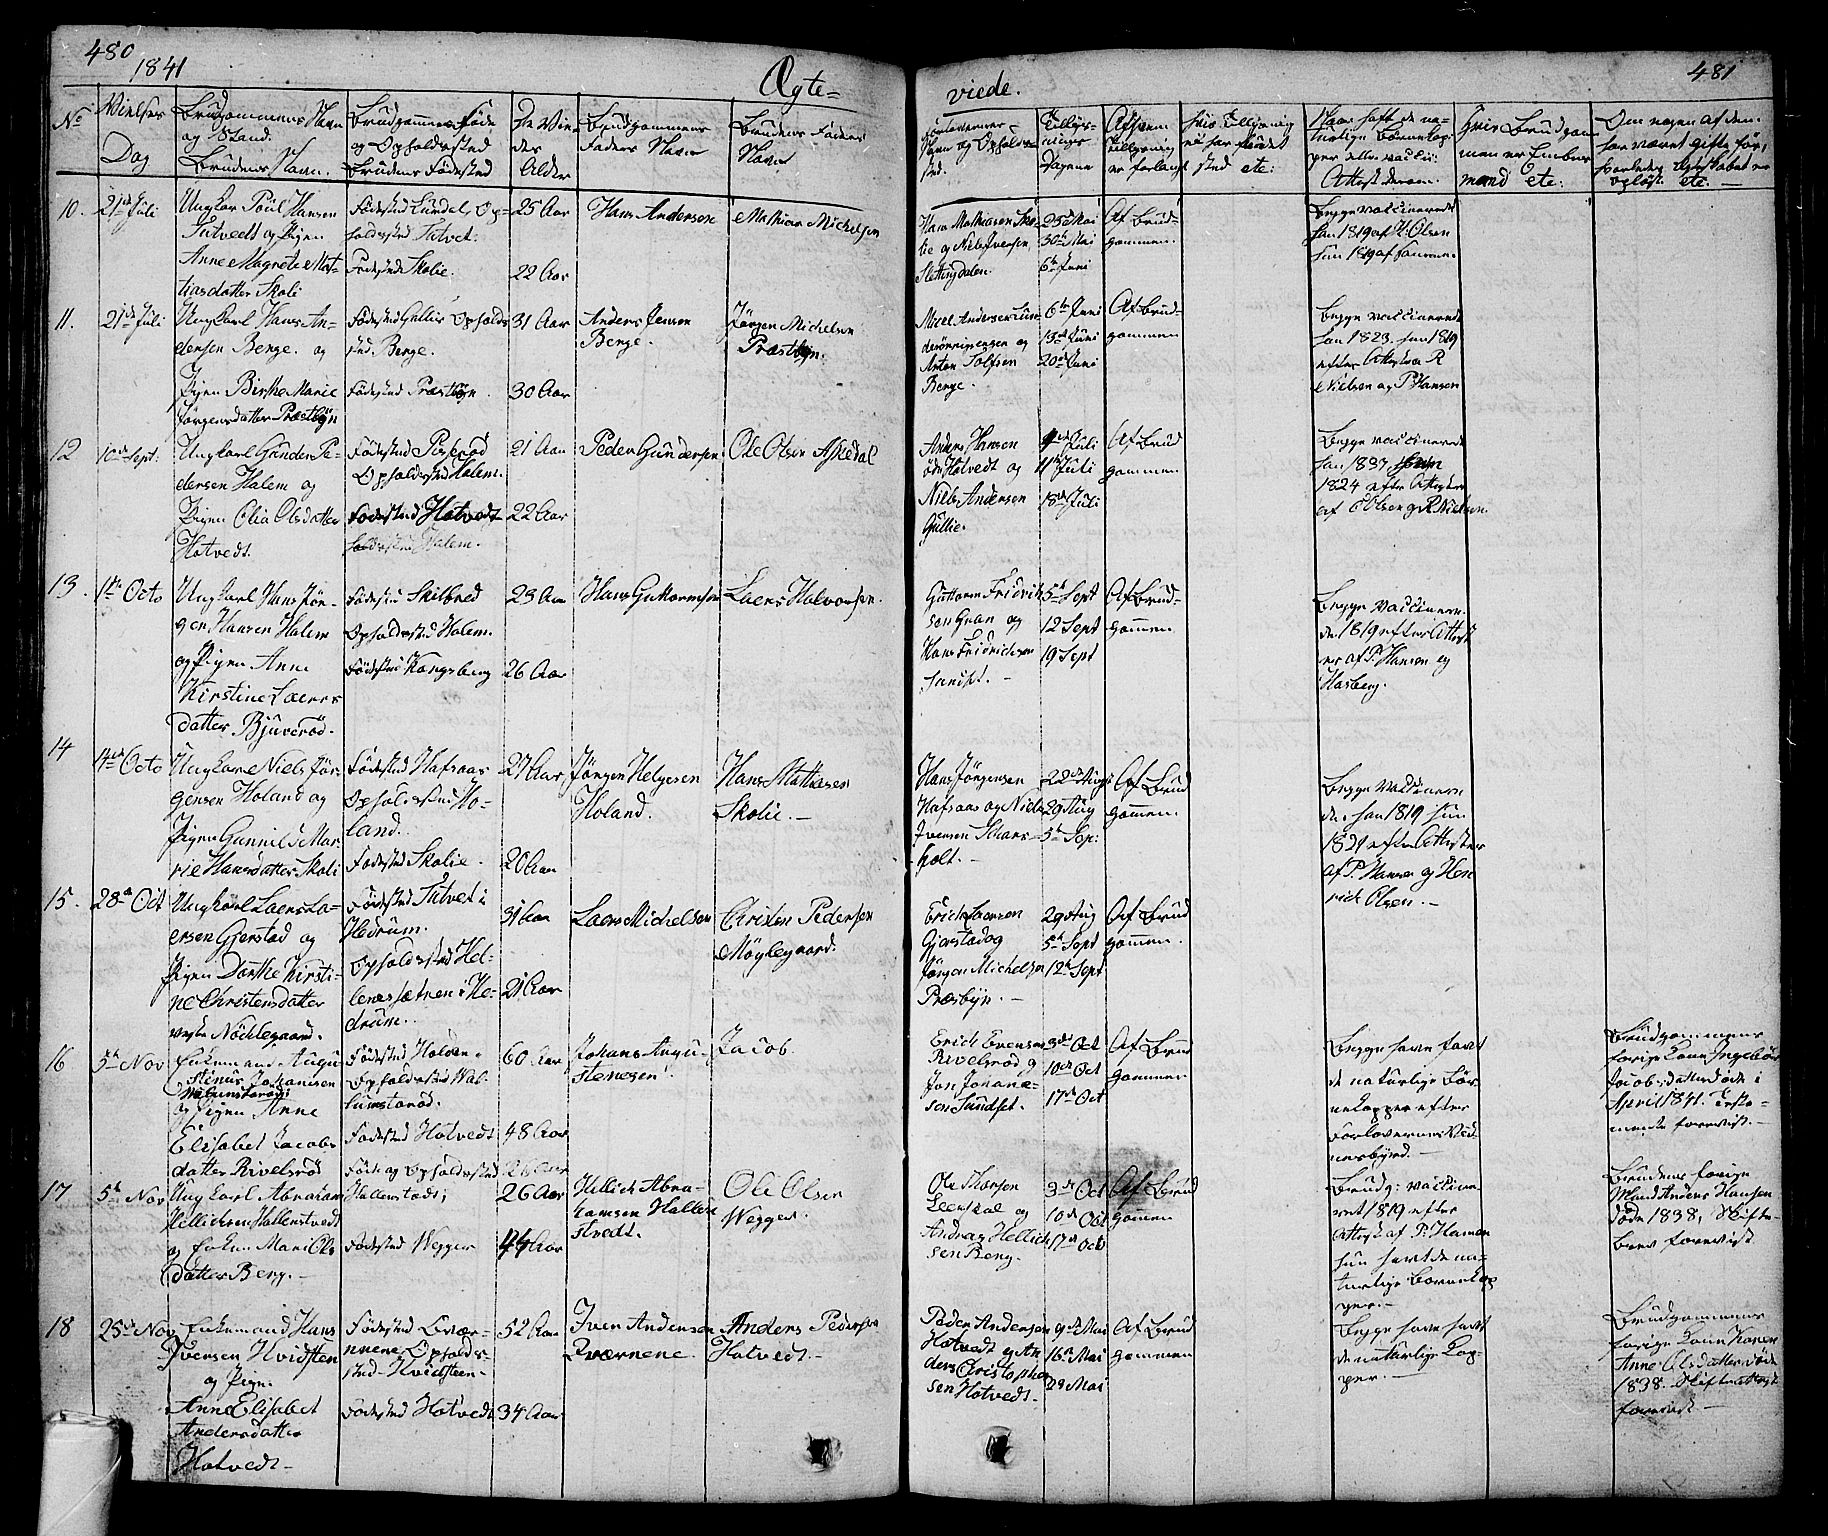 480
1841
Ægte=
viede.
481
No
Vielses
Dag
Brudgommens Navn
og Stand.
Brudens Navn.
Brudgommens Føde
og Opholdssted
Brudens Fødested
De Vie-
des
Alder
Brudgommens
Faders Navn
Brudens Faders
Navn
Forlovernes
Navn og Opholds
sted.
Tillys-
nings
Dagene
Af hvem
Tillysning
er forlangt
Hvis Tillysning
ei har fundet
sted etc:
Hvis Brudgom
men er Embeds
mand etc:
Om nogen af dem
har været gift før,
hvorledes Ægteskabet er
opløst etc. —
10.
21de Juli
Ungkar Poul Hansen
Tutvedt og Pigen
Anne Magrete Mat-
tiasdatter Skoli
Fødested Skolie.
25 Aar
22 Aar
Hans Andersen
Mathias Michelsen
Hans Mathiasen Sko-
lie og Niels Iversen
Slettingdalen.
23de Mai
30te Mai
6te Juni
Af Brud-
gommen.
Begge vaccinerede
han 1819 af H. Olsen
hun 1819 af samme.
11.
21de Juli
Ungkarl Hans An-
dersen Berge. og
Pigen Birthe Marie
Jørgensdatter Præstbyn
Fødested Gullie Opholds
sted. Berge.
Fødested Præstbyn.
31 Aar
30 Aar
Anders Jensen
Berge.
Jørgen Michelsen
Præstbyn.
og
Anton Tolfsen
Berge.
6te Juni
13de Juni
20de Juni
Af Brud-
gommen
Begge vaccinerede
han 1823. hun 1819
efter Attester R
Nielsen og P. Hansen
12
10de Sept:
Ungkarl Gunder Pe-
dersen Halem og
Pigen Olia Olsdatter
Hotvedt.
Opholdssted Halem.
Fødested Hotvedt
Opholdssted Halem.
21 Aar
22 Aar
Peder Gundersen
Ole Olsen Askedal
Anders Hansen
Hotvedt og
Niels Andersen
Gullie.
4de Juli
11te Juli
18de Juli
Af Brud
gommen
Begge vaccinerede
han 1837 hun
1824 efter Attester
af E Olsen og R. Nielsen
13.
1ste Octo
Ungkarl Hans Jør-
gen Hansen Halem
og Pigen Anne
Kirstine Laers
datter Bjuerød.
Fødested Skilbred
Opholdssted Halem.
Fødested Kongsberg
23 Aar
26 Aar
Hans Guttormsen
Laers Halvorsen.
Guttorm Fridrik
sen Gran og
Hans Fridrichsen
5te Sept
12 Sept
19 Sept
Af Brud-
gommen.
Begge vaccinere-
de 1819 efter Attest
er af P. Hansen og
Hasberg.
14
14de Octo
Ungkar Niels Jør-
gensen Holand og
Pigen Gunnild Mar-
rie Hansdatter Skoli
Fødested Hafsaas
Opholdssted Ho-
land.
Fødested Skolie.
27 Aar
20 Aar
Jørgen Helgesen
Holand.
Hans Mathiesen
Skolie. —
Hans Jørgensen
Hafsaas og Niels
Iversen Skars-
holt. —
22de Aug
29 Aug
5te Sep:
Af Brud
gommen.
Begge vaccinere
de, han 1819 hun
1821 efter Attester
af P. Hansen og Hen
rich Olsen. —
15.
28de Oct
Ungkarl Laers La-
ersen Gjerstad og
Pigen Dorthe Kirsti-
ne Christensdatter
Nøcklegaard.
Fødested Tutvet i
Hedrum.
Opholdssted Hel-
lenessætren i He-
drum.
31 Aar
21 Aar
Laers Michelsen
Christen Pedersen
Møglegaard.
Erich Laersen
Gjerstad og
Jørgen Michelsen
Præsbyn. —
29 Aug
5te Sept
12te Sept
Af Brud
gommen.
16
5te Nov
Enkemand Augu
stinus Johansen
Walumstørød
og Pigen Anne
Elisabet Jacobs
datter Rivelsrød
Fødested Holden.
Opholdssted Wal-
lumstørød.
Fødested Hotvedt
60 Aar
48 Aar
Johans Augu-
stinesen
Jacob.
Erich Evensen
Rivelsrød og
Jon Johane-
sen Sundset.
3die Oct
10de Oct
17de Oct
Af Brud
gommen
Begge have havt
de naturlige Bør
nekopper efter
Forlovernes Vid
nesbyrd. —
Brudgommens
forige Kone Ingebør
Jacobsdatter døde i
April 1841. Testa-
mente forevist. —
17
5te Nov
Ungkarl Abraham
Hellichsen Hallenstvedt
og Enken Mari Ols
datter Berg. —
Føde og Opholdssted
Hallenstedt;
Fødested Wegger
26 Aar
44 Aar
Hellich Abra-
hamsen Hallen
stvedt.
Ole Olsen
Wegger.
Ole Thorsen
og
Andreas Hellich
sen Berg.
3die Oct
10de Oct
17de Octo
Af Brud
gommen
Brudg: vaccine-
ret 1819 efter
Attest af P. Hansen
hun havt de na-
turlige Børnekop
per. —
Brudens forige
Mand Anders Hansen
døde 1838, Skifte-
brev forevist.
18
25de Nov
Enkemand Hans
Iversen Hvidsten
og Pigen
Anne Elisabet
Andersdatter
Hotvedt —
Fødested Qvær-
nene Opholds-
sted Hvidsteen
Fødested Hotvedt
52 Aar
34 Aar
Iver Andersen
Qværnene.
Anders Pedersen
Hotvedt. —
Peder Andersen
Hotvedt og An
ders Christophe
sen Hotvedt.
9de Mai
16de Mai
Af Brud
gommen
Begge have havt
de naturlige Kop
per. —
Brudgommens
forige Kone Karen
Anne Olsdatter døde
1838. Skifteattest
forevist —